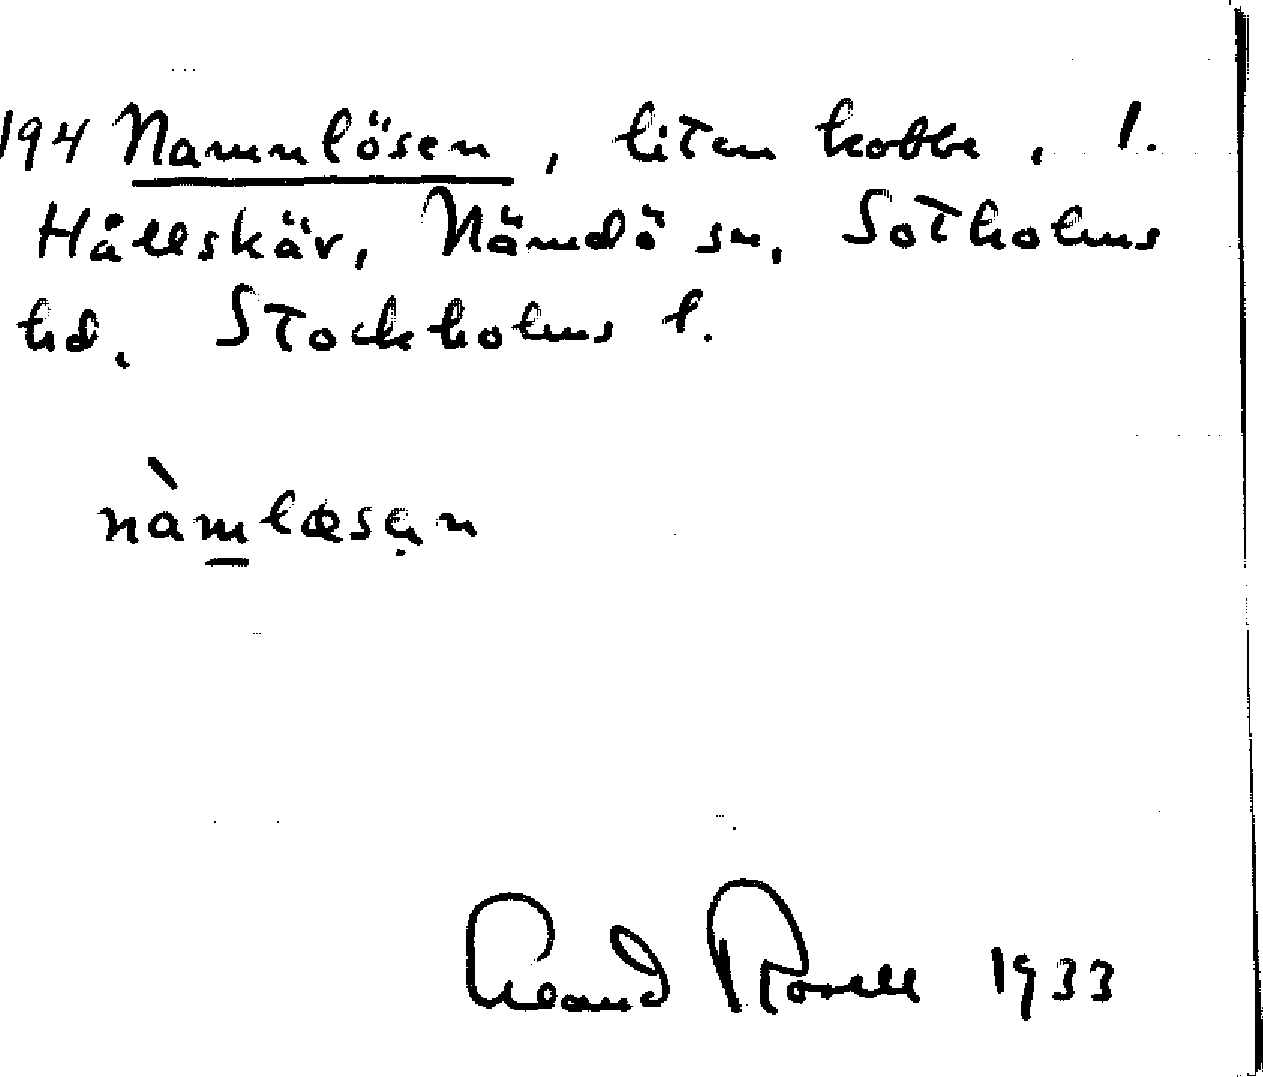 194 Namnlösen, liten kobbe, l.
Hållskär, Nämdö sn, Sotholms
hd, Stockholms l.
nàmlœsęn
Rosell 1933